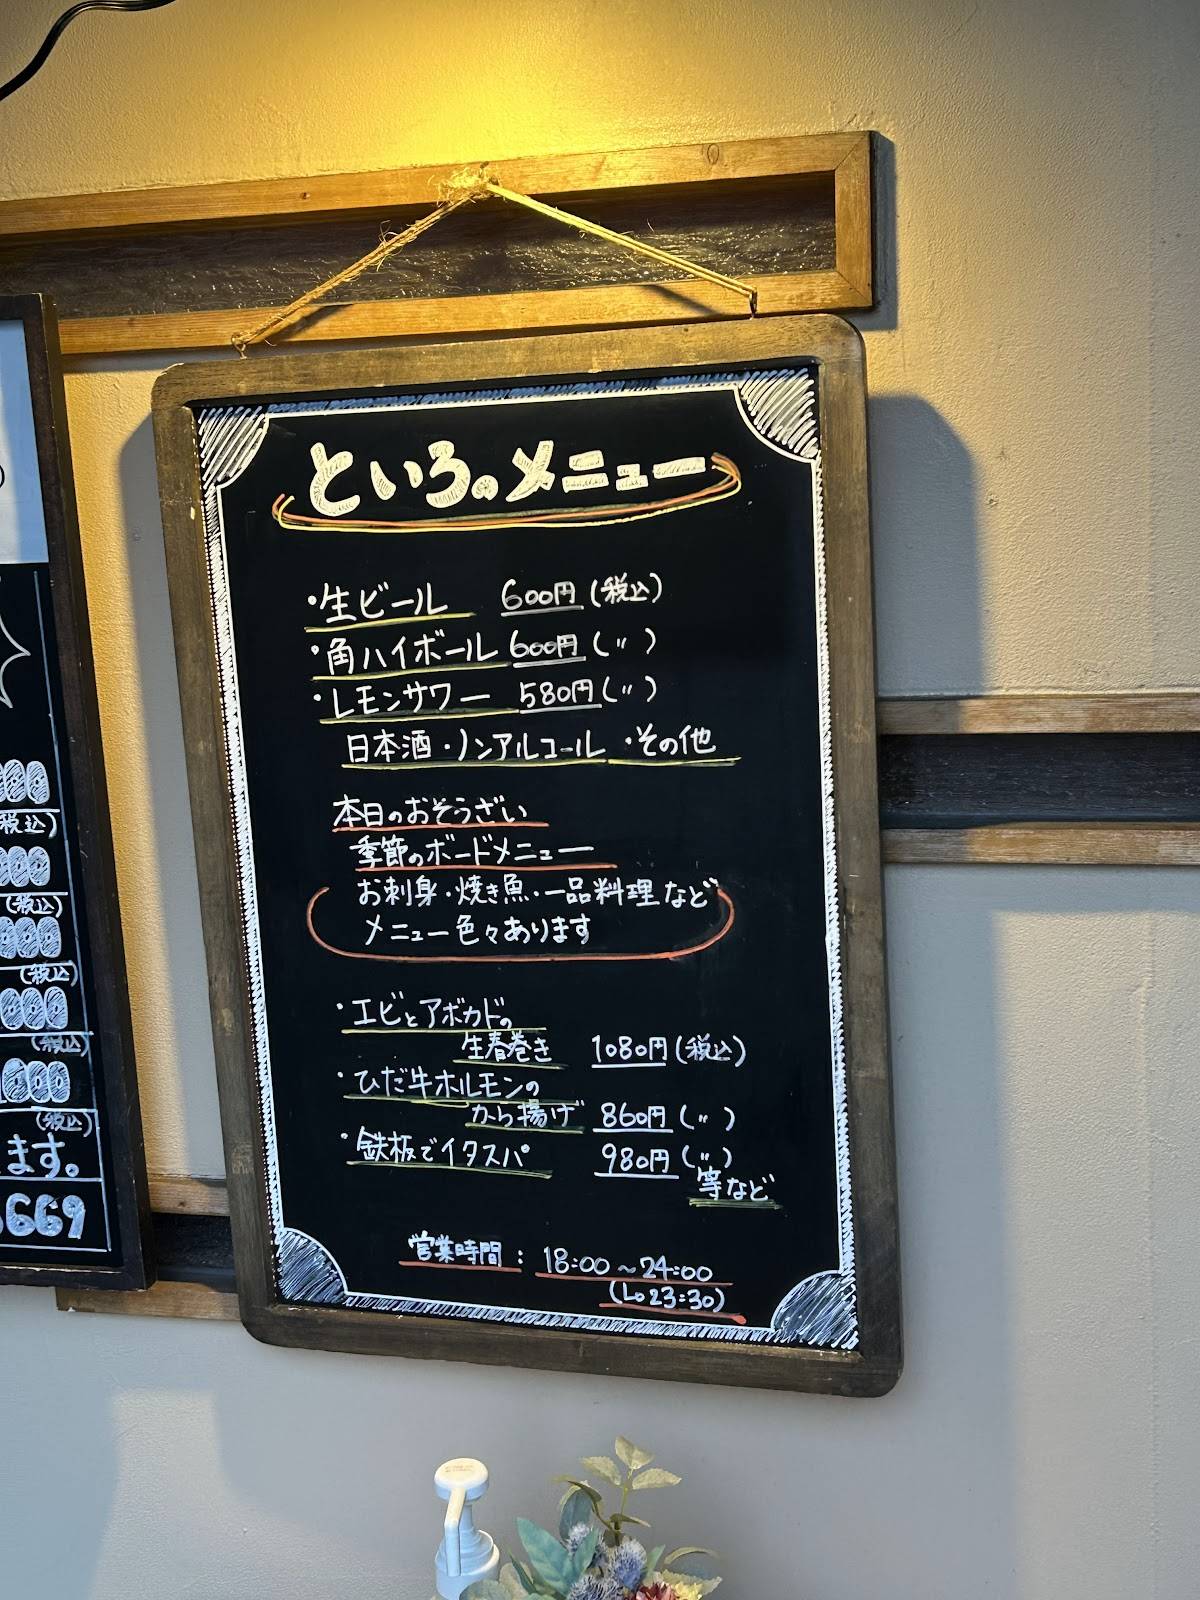 といろ。メニュー
・生ビール 600円(税込)
・角ハイボール 600円(〃)
・レモンサワー 580円(〃)
日本酒・ノンアルコール・その他
本日のおそうざい
季節のボードメニュー
お刺身・焼き魚・一品料理など
メニュー色々あります
・エビとアボカドの
生春巻き 1080円(税込)
・ひだ牛ホルモンの
から揚げ 860円(〃)
・鉄板でイタスパ 980円(〃)
等など
営業時間：18:00～24:00
(Lo 23:30)
000
(税込)
000
(税込)
000
(税込)
000
(税込)
000
(税込)
ます。
669